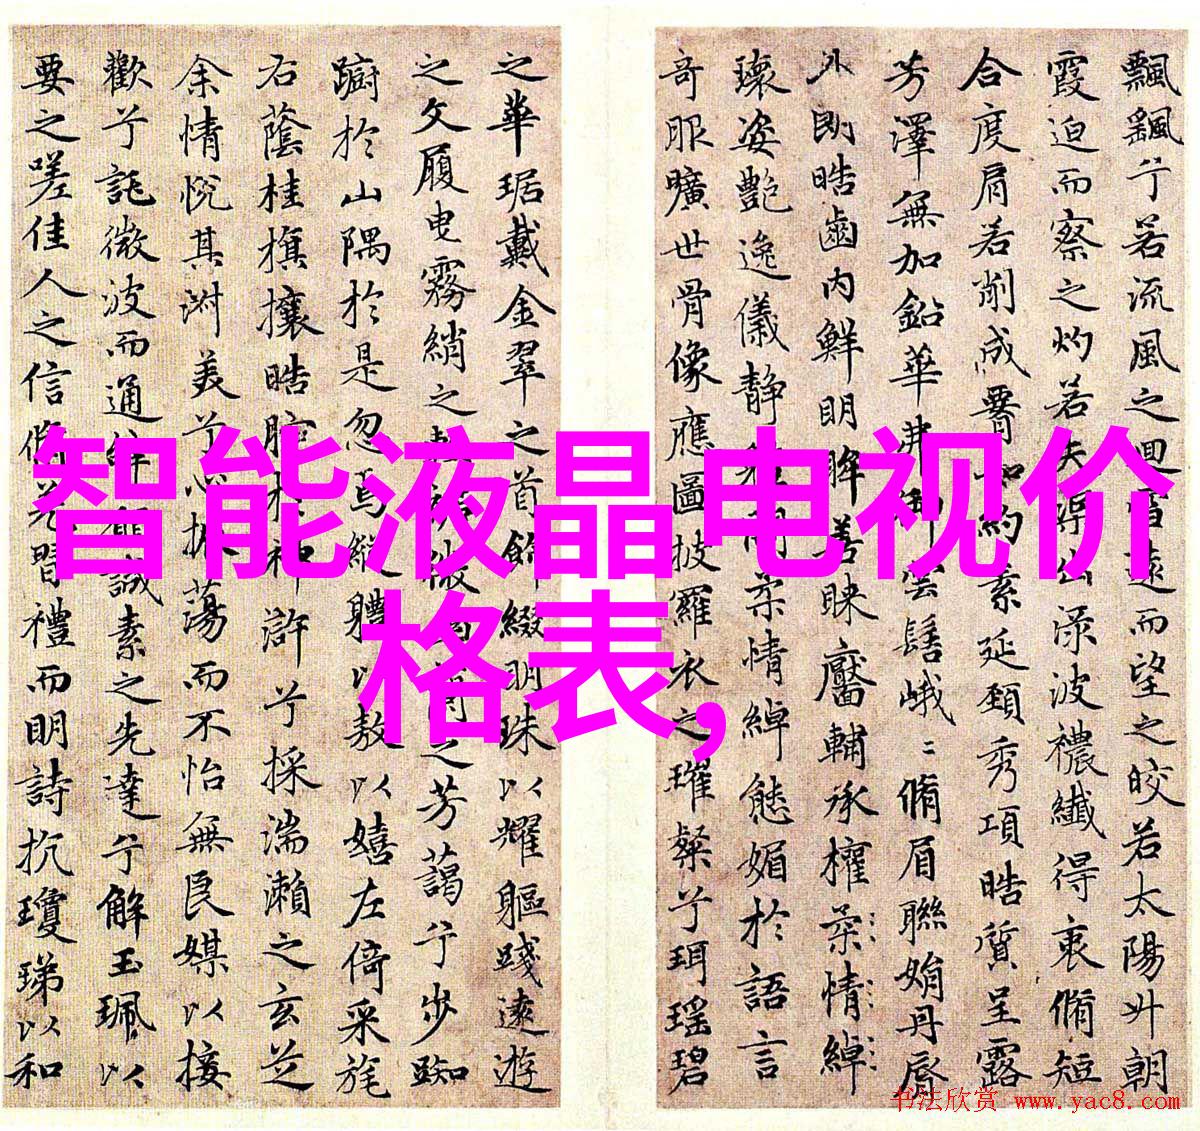 飄飖兮若流風之迴雪遠而望之皎若太陽升朝
霞迫而察之灼若夫渠出淥波穠纖得衷脩短
合度肩若削成腰如約素延頸秀項皓質呈露
芳澤無加鉛華弗御雲髻峨〻脩眉聯娟丹脣
外朗皓齒内鮮明眸善睞靨輔承權柔情綽
瓌姿艷逸儀靜體閑柔情綽態媚於語言
奇服曠世骨像應圖披羅衣之璀粲兮珥瑤碧
之華琚戴金翠之首飾綴明珠以耀軀踐遠遊
之文履曳霧綃之輕裾微幽蘭之芳藹兮步踟
躕於山隅於是忽焉縱體以敖以嬉左倚采旄
右蔭桂旗攘皓腕於神滸兮採湍瀨之玄芝
余情悅其淑美兮心振蕩而不怡無良媒以接
歡兮託微波而通辭願誠素之先達兮解玉珮以
要之嗟佳人之信脩羌習禮而明詩抗瓊珶以和
智能液晶电视价
格表,
书法欣赏 www.yac8.com